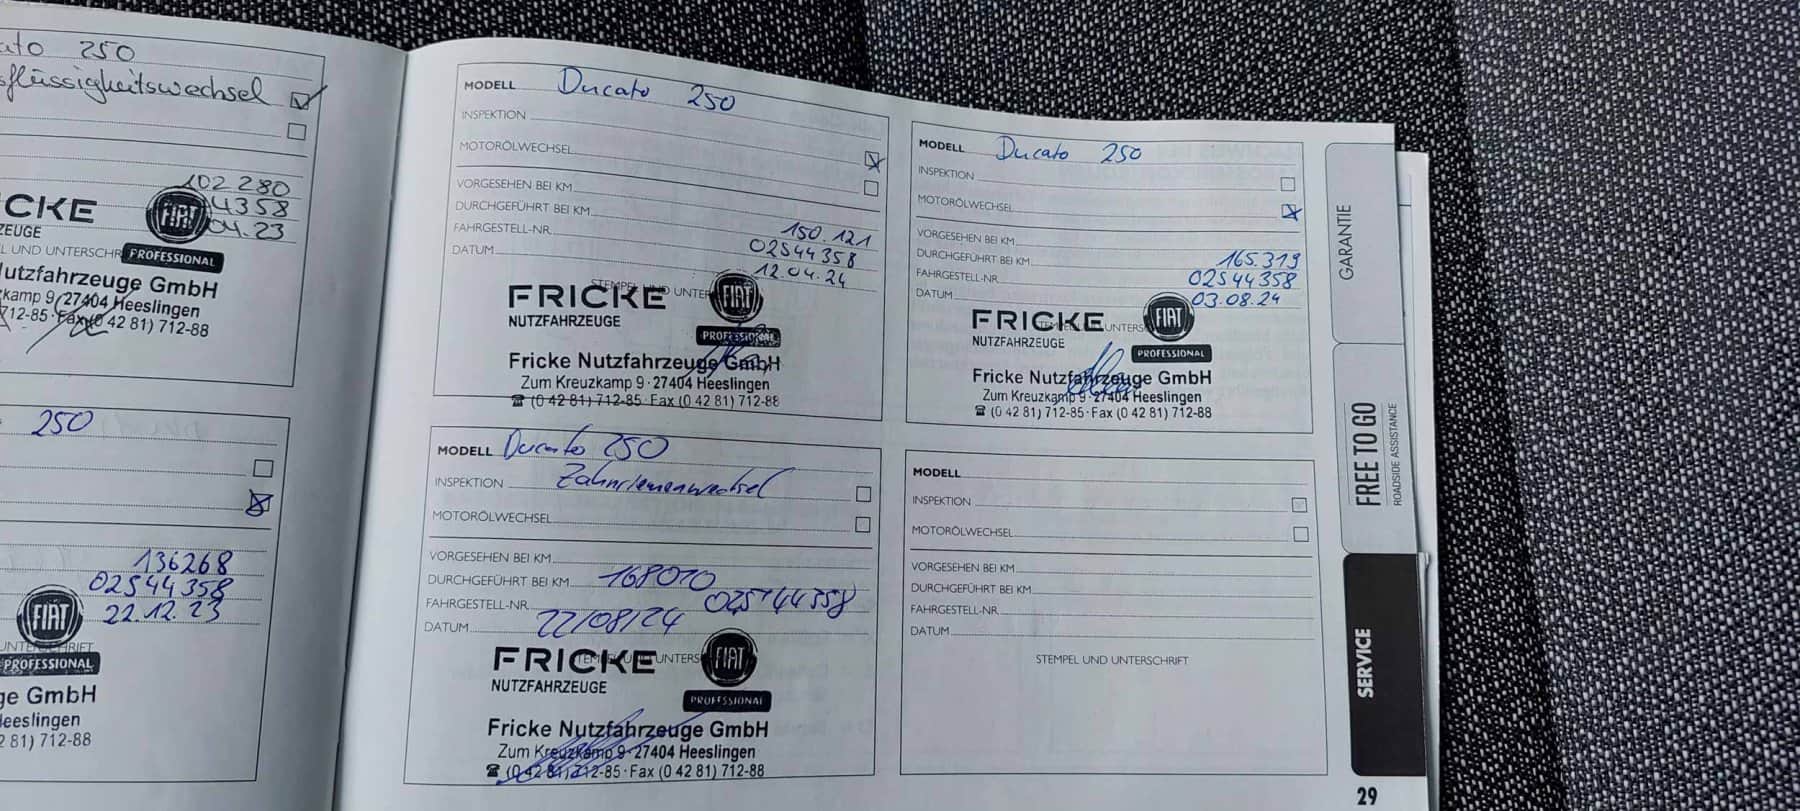 250
flüssigkeitswechsel
102 280
4358
04.23
FIAT
PROFESSIONAL
CKE
ZEUGE
UND UNTERSCHR
utzfahrzeuge GmbH
kamp 9 · 27404 Heeslingen
712-85 · Fax (0 42 81) 712-88
250
136268
02544358
22.12.23
FIAT
PROFESSIONAL
ge GmbH
eeslingen
2 81) 712-88
MODELL Ducato 250
INSPEKTION
MOTORÖLWECHSEL
VORGESEHEN BEI KM
DURCHGEFÜHRT BEI KM 150.121
FAHRGESTELL-NR. 02544358
DATUM 12.04.24
STEMPEL UND UNTER
FRICKE FIAT
NUTZFAHRZEUGE PROFESSIONAL
Fricke Nutzfahrzeuge GmbH
Zum Kreuzkamp 9 · 27404 Heeslingen
☎ (0 42 81) 712-85 · Fax (0 42 81) 712-88
MODELL Ducato 250
INSPEKTION
MOTORÖLWECHSEL
VORGESEHEN BEI KM
DURCHGEFÜHRT BEI KM 165.319
FAHRGESTELL-NR. 02544358
DATUM 03.08.24
FRICKE FIAT
NUTZFAHRZEUGE PROFESSIONAL
Fricke Nutzfahrzeuge GmbH
Zum Kreuzkamp 9 · 27404 Heeslingen
☎ (0 42 81) 712-85 · Fax (0 42 81) 712-88
MODELL Ducato 250
INSPEKTION Zahnriemenwechsel
MOTORÖLWECHSEL
VORGESEHEN BEI KM
DURCHGEFÜHRT BEI KM 168010
FAHRGESTELL-NR. 02544358
DATUM 22/08/24
FRICKE FIAT
NUTZFAHRZEUGE PROFESSIONAL
Fricke Nutzfahrzeuge GmbH
Zum Kreuzkamp 9 · 27404 Heeslingen
☎ (0 42 81) 712-85 · Fax (0 42 81) 712-88
MODELL
INSPEKTION
MOTORÖLWECHSEL
VORGESEHEN BEI KM
DURCHGEFÜHRT BEI KM
FAHRGESTELL-NR.
DATUM
STEMPEL UND UNTERSCHRIFT
GARANTIE
FREE TO GO
ROADSIDE ASSISTANCE
SERVICE
29